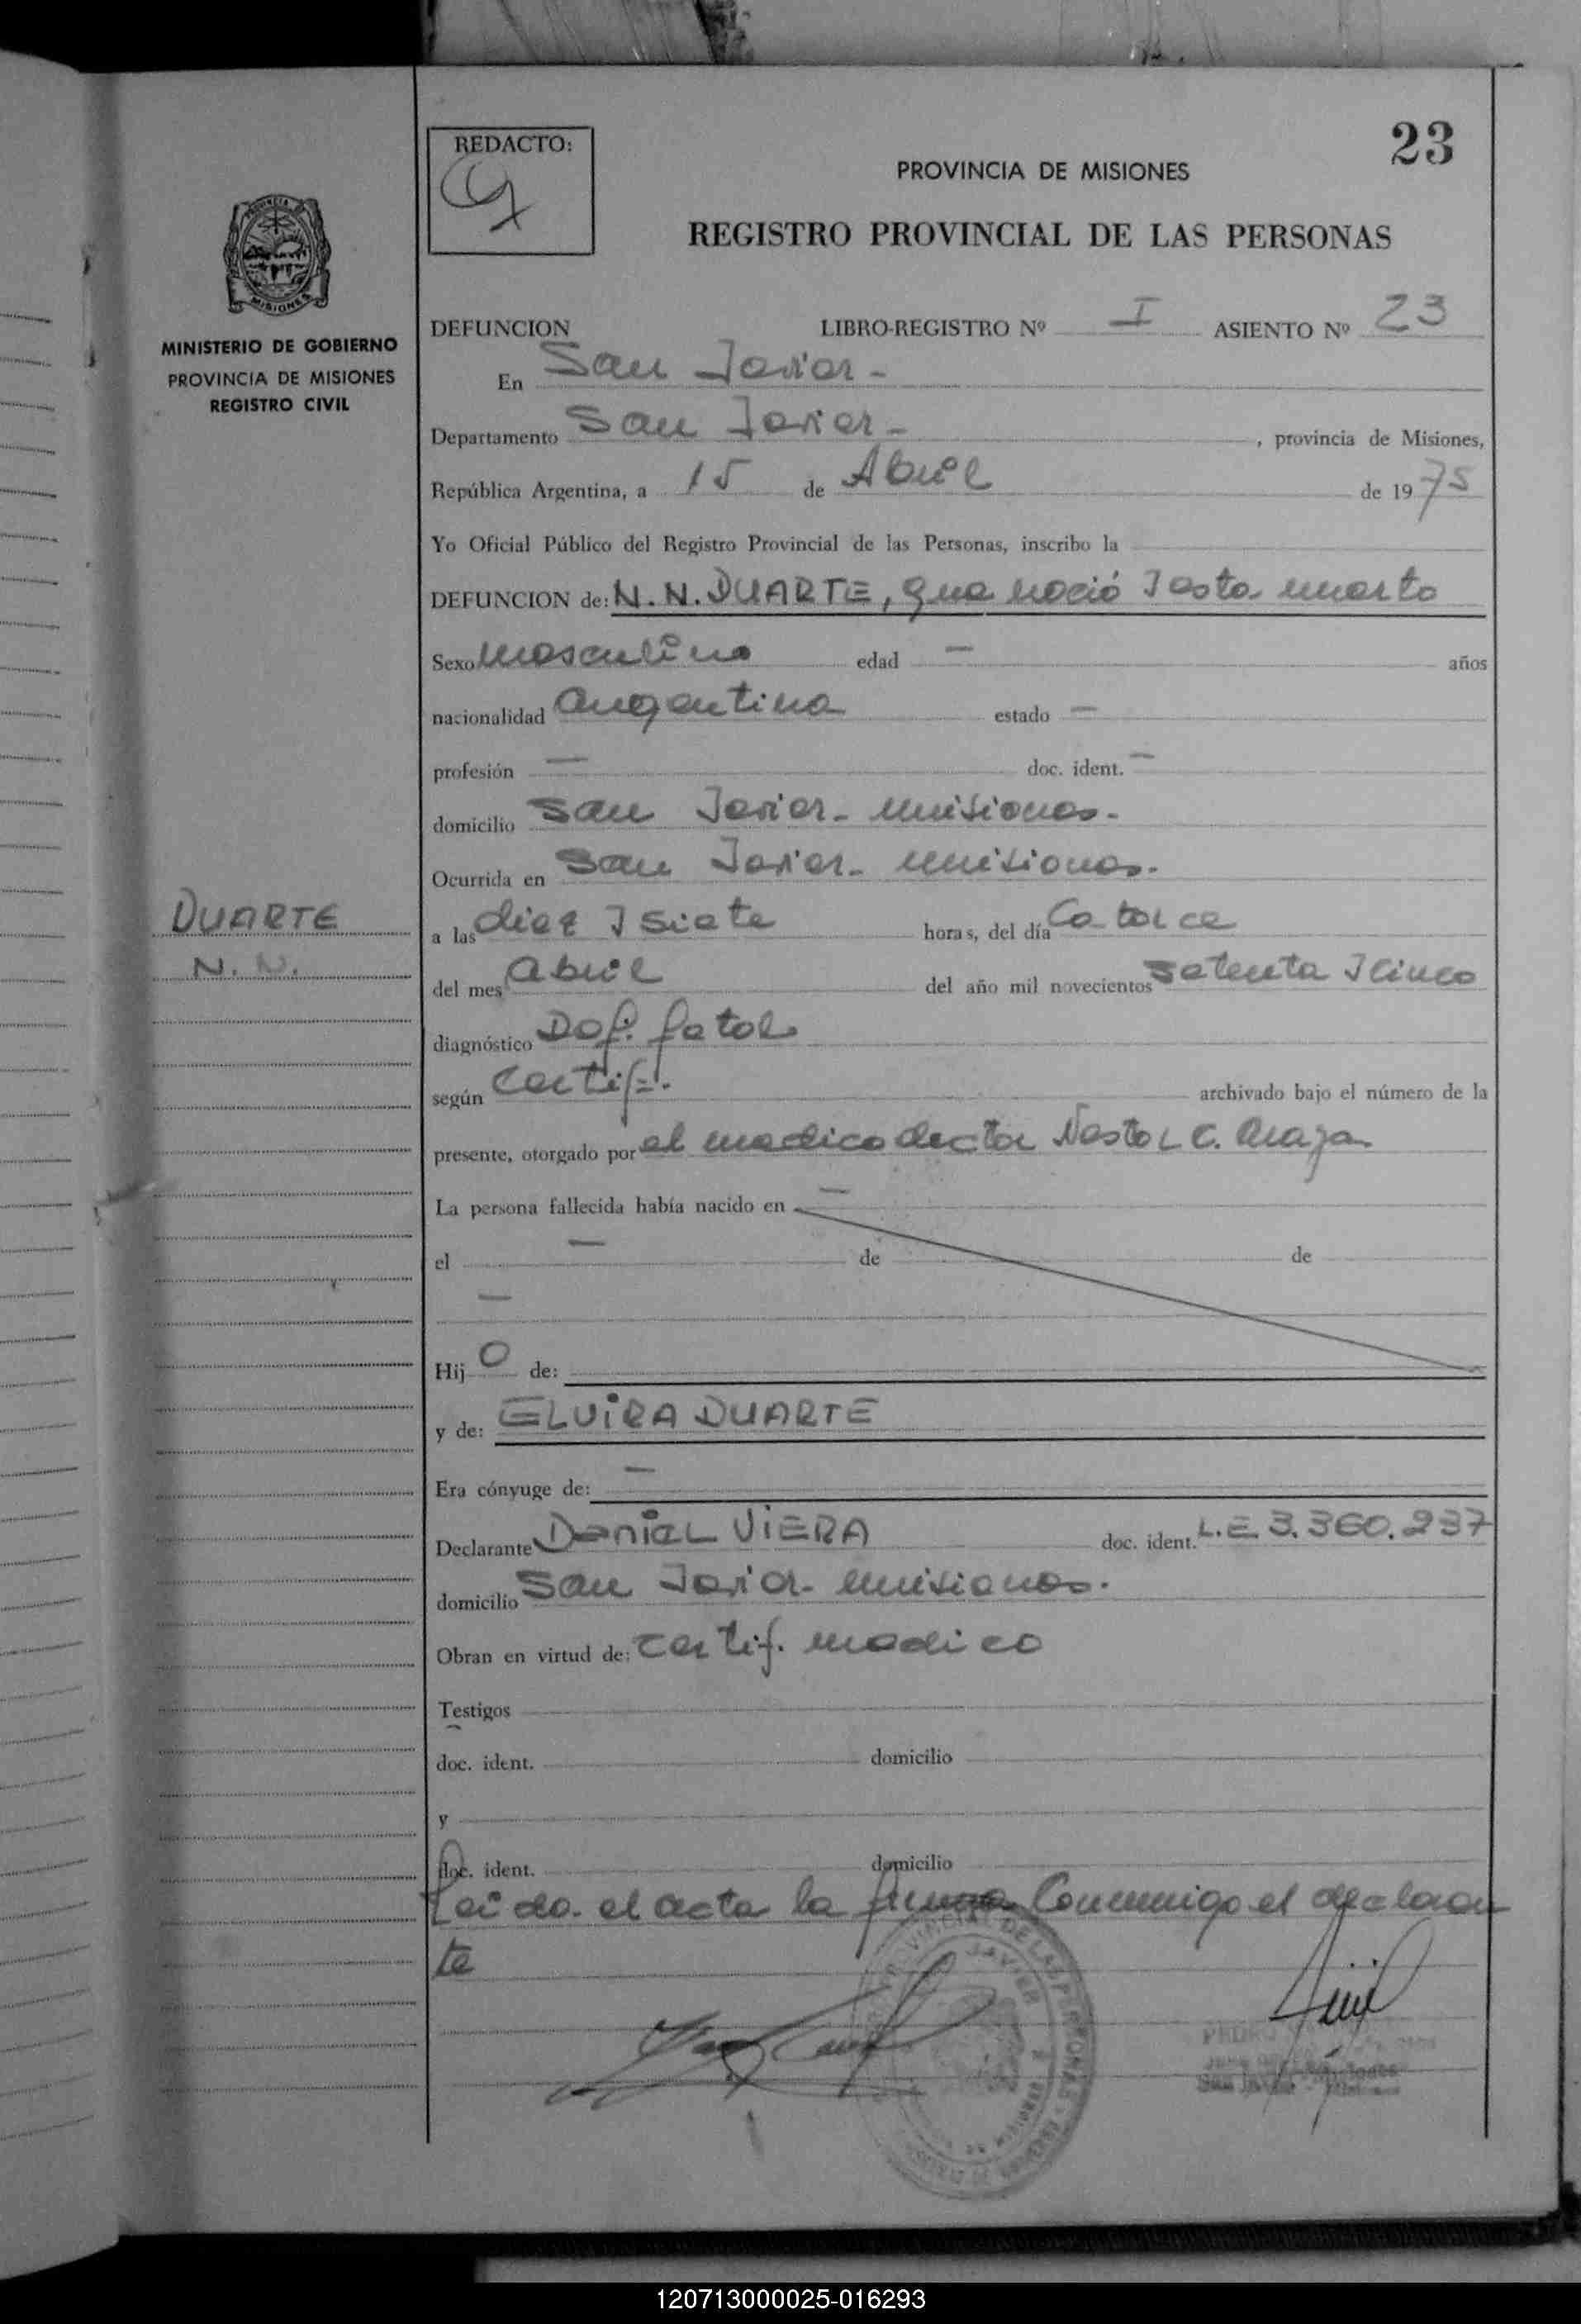 REDACTO:
23
PROVINCIA DE MISIONES
REGISTRO PROVINCIAL DE LAS PERSONAS
MISIONES
MINISTERIO DE GOBIERNO
PROVINCIA DE MISIONES
REGISTRO CIVIL
DEFUNCION LIBRO-REGISTRO Nº I ASIENTO Nº 23
En San Javier -
Departamento San Javier - , provincia de Misiones,
República Argentina, a 15 de Abril de 1975
Yo Oficial Público del Registro Provincial de las Personas, inscribo la
DEFUNCION de: N. N. DUARTE, que nació I esta muerto
Sexo Masculino edad — años
nacionalidad argentina estado —
profesión — doc. ident. —
domicilio San Javier - misiones.
Ocurrida en San Javier - misiones.
DUARTE
N. N.
a las diez I siete horas, del día Catorce
del mes abril del año mil novecientos setenta I cinco
diagnóstico Dof. fetal
según Certif. archivado bajo el número de la
presente, otorgado por el medico doctor Nestor C.
La persona fallecida había nacido en —
el — de de
—
Hijo de:
y de: ELVIRA DUARTE
Era cónyuge de: —
Declarante Daniel VIERA doc. ident. L.E. 3.360.237
domicilio San Javier - misiones.
Obran en virtud de: Certif. medico
Testigos
doc. ident. domicilio
y
doc. ident. domicilio
Leido el acta la firma Conmigo el declaran
te
120713000025-016293